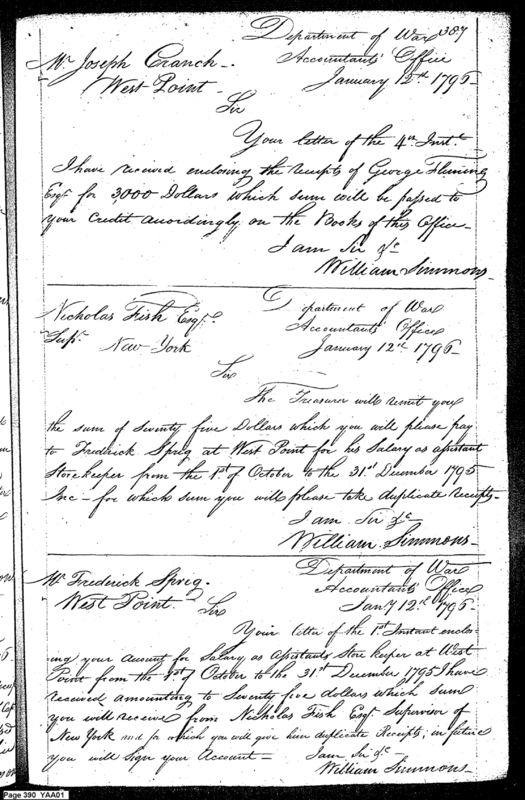 387
Department of War
Mr. Joseph Cranch.
Accountants Office
West Point
January 12th 1796
Sir
Your letter of the 4th Inst.
I have received enclosing the receipts of George Fleming
Esqr. for 3,000 Dollars which sum will be passed to
your Credit accordingly on the Books of this Office
I am Sir &c
William Simmons
Nicholas Fish Esqr.
Department of War
Supr.
Accountants Office
New York
January 12th 1796
Sir
The Treasurer will remit you
the sum of seventy five Dollars which you will please pay
to Frederick Sprig at West Point for his Salary as assistant
Storekeeper from the 1st of October to the 31st December 1795
Inc - for which sum you will please take duplicate receipts
I am Sir &c
William Simmons
Department of War
Mr Frederick Sprig.
Accountants Office
West Point
Sir
Jany 12th 1796
Your letter of the 1st Instant enclos-
ing your account for Salary as Assistants Store keeper at West
Point from the 1st of October to the 31st December 1795 I have
received amounting to Seventy five dollars which sum
you will receive from Nicholas Fish Esqr. Supervisor of
New York and for which you will give him duplicate Receipts; in future
you will sign your Account -
I am Sir &c
William Simmons
Page 390 YAA01